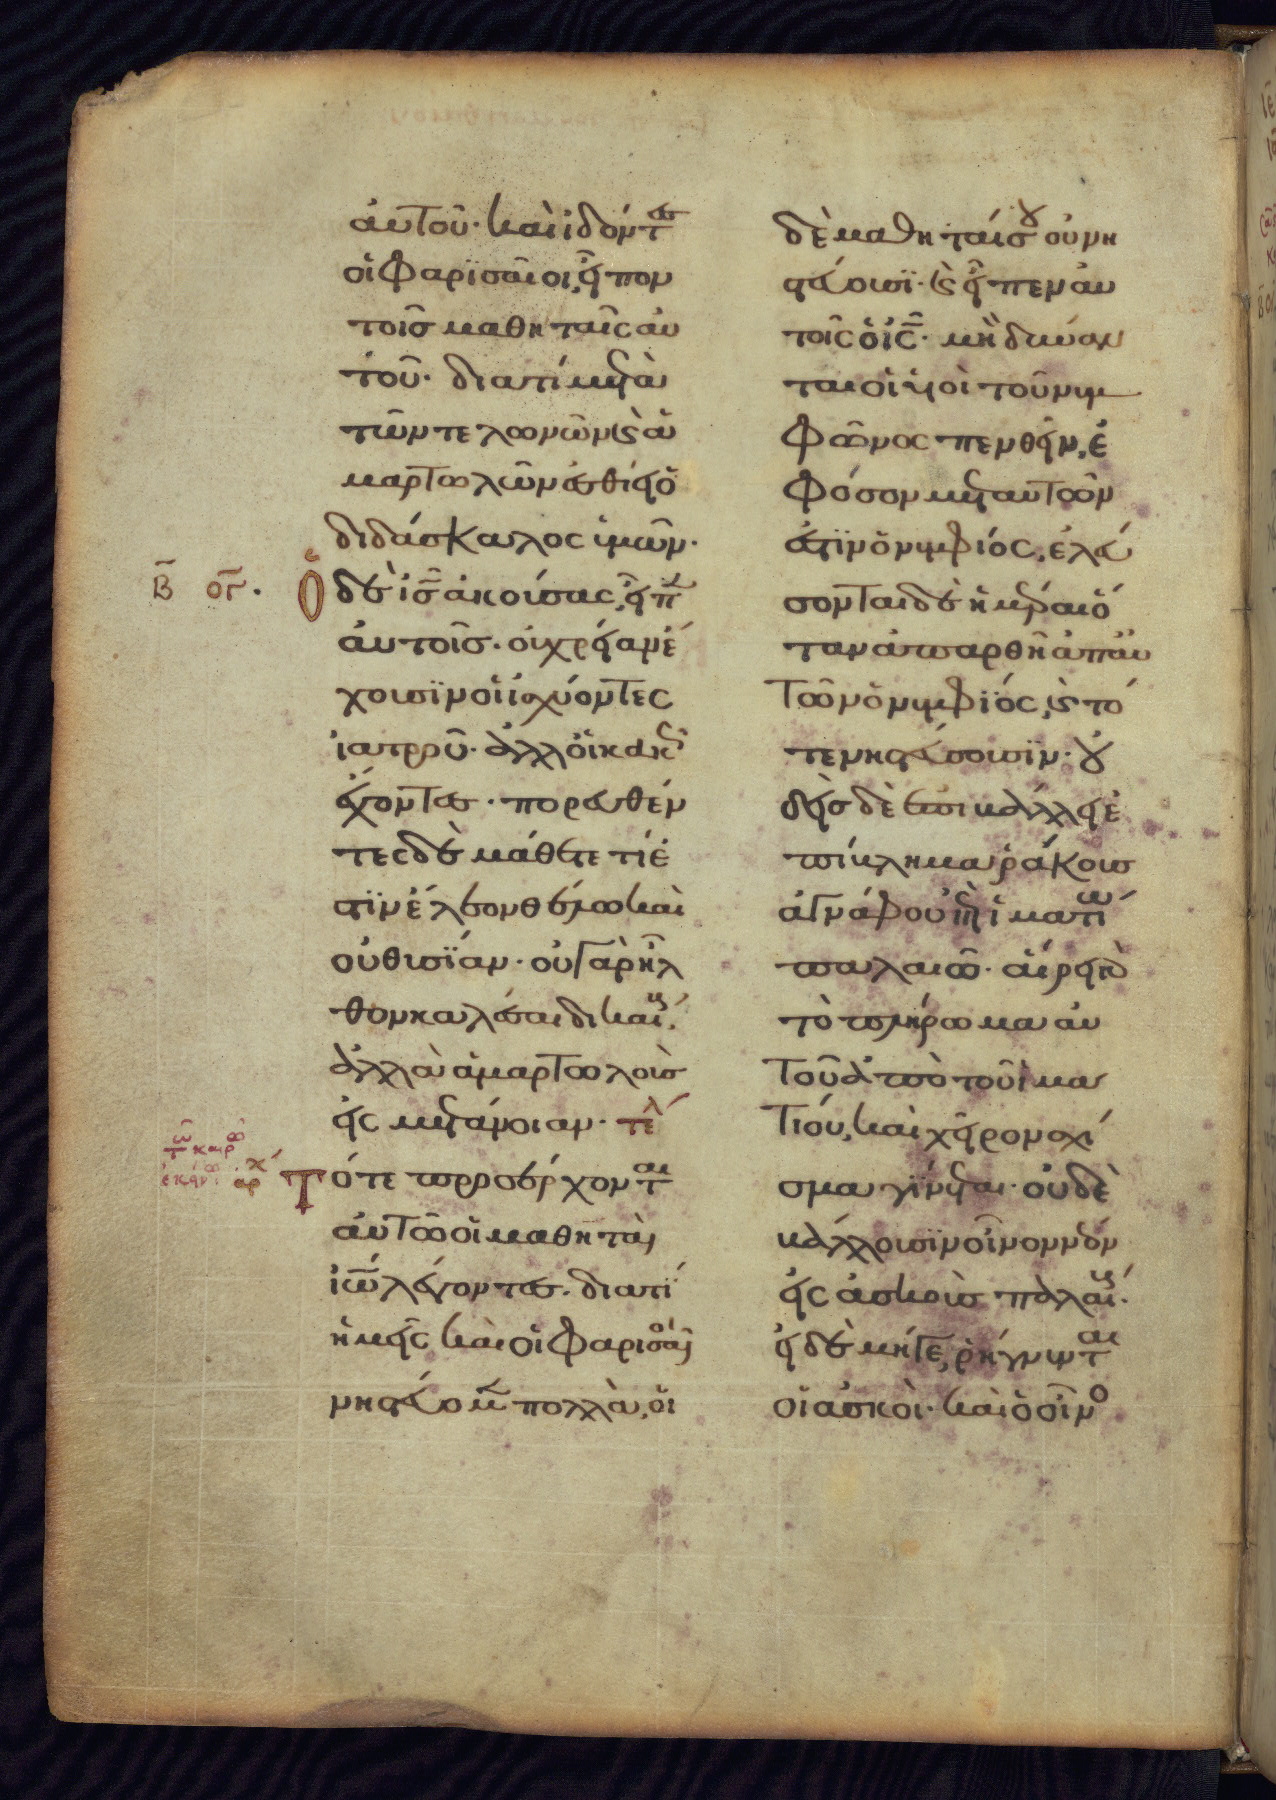 αὐτοῦ· καὶ ἰδόντ(ες)
οἱ Φαρϊσαῖοι, εἶπον
τοῖς μαθηταῖς αὐ
τοῦ· διατί μετὰ
τῶν τελωνῶν (καὶ) ἁ
μαρτωλῶν ἐσθίει ὁ
διδάσκαλος ὑμῶν·
Β ογ· Ὁ δὲ ι̅ς̅ ἀκούσας, εἶπ(εν)
αὐτοῖς· οὐ χρείαν ἔ
χουσϊν οἱ ἰσχύοντες
ἰατροῦ· ἀλλ' οἱ κακ(ῶς)
ἔχοντες· πορευθέν
τες δὲ μάθετε τί ἐ
στϊν ἔλεον θέλω καὶ
οὐ θυσϊαν· οὐ γὰρ ἦλ
θον καλέσαι δικαί(ους)
ἀλλὰ ἁμαρτωλοὺς
εἰς μετάνοιαν· τέλ
τῶ καιρῶ
ἐκείν αρχ
Τότε προσέρχοντ(αι)
αὐτῶ οἱ μαθηταὶ
ἰω̅ λέγοντες· διατί
ἡμεῖς καὶ οἱ Φαρισαῖοι
νηστεύομ(εν) πολλὰ, οἱ
δὲ μαθηταί σου οὐ νη
στεύουσϊ· (καὶ) εἶπεν αὐ
τοῖς ὁ ι̅ς̅· μὴ δύναν
ται οἱ υἱοὶ τοῦ νυμ
Φῶνος πενθεῖν, ἐ
Φόσον μετ' αὐτῶν
ἐστϊν ὁ νυμφίος, ἐλεύ
σονται δὲ ἡμέραι ὅ
ταν ἀπαρθῆ ἀπ' αὐ
τῶν ὁ νυμφϊος, (καὶ) τό
τε νηστεύσουσϊν· οὐ
δεὶς δὲ ἐπιβάλλει ἐ
πίβλημα ῥάκους
ἀγνάφου ἐπὶ ἱματίω
παλαιῶ· αἴρει γ(ὰρ)
τὸ πλήρωμα αὐ
τοῦ ἀπὸ τοῦ ἱμα
τίου, καὶ χεῖρον σχί
σμα γϊνεται· οὐδὲ
βάλλουσϊν οἶνον νέον
εἰς ἀσκοὺς παλαι(ούς)·
εἰ δὲ μήγε, ῥήγνυντ(αι)
οἱ ἀσκοὶ· καὶ ὁ οἶνο